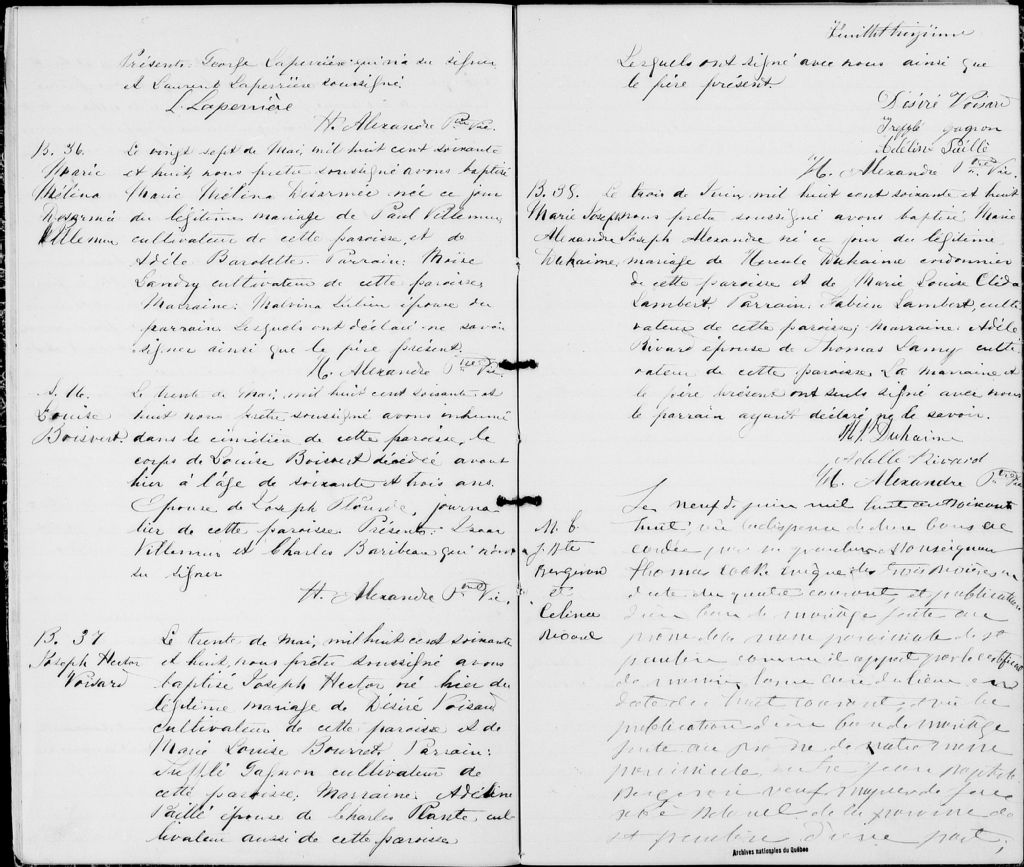 Présents: George Laperrière qui n'a su signer
et Laurent Laperrière soussigné.
L. Laperrière
H. Alexandre Ptre Vic.
B. 36.
Marie
Mélina
Désarmé
Villemur
Le vingt sept de Mai, mil huit cent soixante
et huit, nous prêtre soussigné avons baptisé
Marie Mélina Désarmée née ce jour
du légitime mariage de Paul Villemur
cultivateur de cette paroisse et de
Adèle Barolette. Parrain: Moïse
Landry cultivateur de cette paroisse,
Marraine: Malvina épouse du
parrain. Lesquels ont déclaré ne savoir
signer ainsi que le père présent.
H. Alexandre Ptre Vic.
S. 16.
Louise
Boisvert.
Le trente de Mai, mil huit cent soixante et
huit nous prêtre soussigné avons inhumé
dans le cimitière de cette paroisse, le
corps de Louise Boisvert décédée avant
hier à l'âge de soixante et trois ans.
Epouse de Joseph Plourde, journa
lier de cette paroisse. Présents:
Villemur et Charles Baribeau qui n'ont
su signer
H. Alexandre Ptre Vic.
B. 37
Joseph Hector
Voisard
Le trente de mai, mil huit cent soixante
et huit, nous prêtre soussigné avons
baptisé Joseph Hector né hier du
légitime mariage de Désiré Voisard
cultivateur de cette paroisse et de
Marie Louise Bourret. Parrain:
Trefflé Gagnon cultivateur de
cette paroisse; Marraine: Adéline
Paillé épouse de Charles Plante, cul
tivateur aussi de cette paroisse
Lesquels ont signé avec nous ainsi que
le père présent.
Désiré Voisard
Trefflé gagnon
Adéline Paillé
H. Alexandre Ptre Vic.
B. 38.
Marie Joseph
Alexandre
Duhaime
Le trois de Juin, mil huit cent soixante et huit
nous prêtre soussigné avons baptisé Marie
Joseph Alexandre né ce jour du légitime
mariage de Hercule Duhaime cordonnier
de cette paroisse et de Marie Louise Cléda
Lambert. Parrain: Fabien Lambert, culti
vateur de cette paroisse; Marraine: Adèle
Rivard épouse de Thomas Lamy culti
vateur de cette paroisse. La marraine et
le père présent ont seuls signé avec nous
le parrain ayant déclaré ne le savoir.
Duhaime
Adelle Rivard
H. Alexandre Ptre Vic
M. 6.
J. Bte
Bergeron
et
Celina
Le neuf de juin mil huit cent soixante
huit; vu la dispense de deux bans ac
cordée par sa grandeur Monseigneur
thomas cooke évêque des trois rivières en
date du quatre courant, et publication
d'un ban de mariage faite au
prône de la messe paroissiale de st
paulin comme il appert par le certificat
de messire curé du lieu en
date du huit courant, vu la
publication d'un ban de mariage
faite au prône de notre messe
paroissiale entre jean baptiste
bergeron veuf majeur de
de la paroisse de
st paulin d'une part;
Archives nationales du Québec